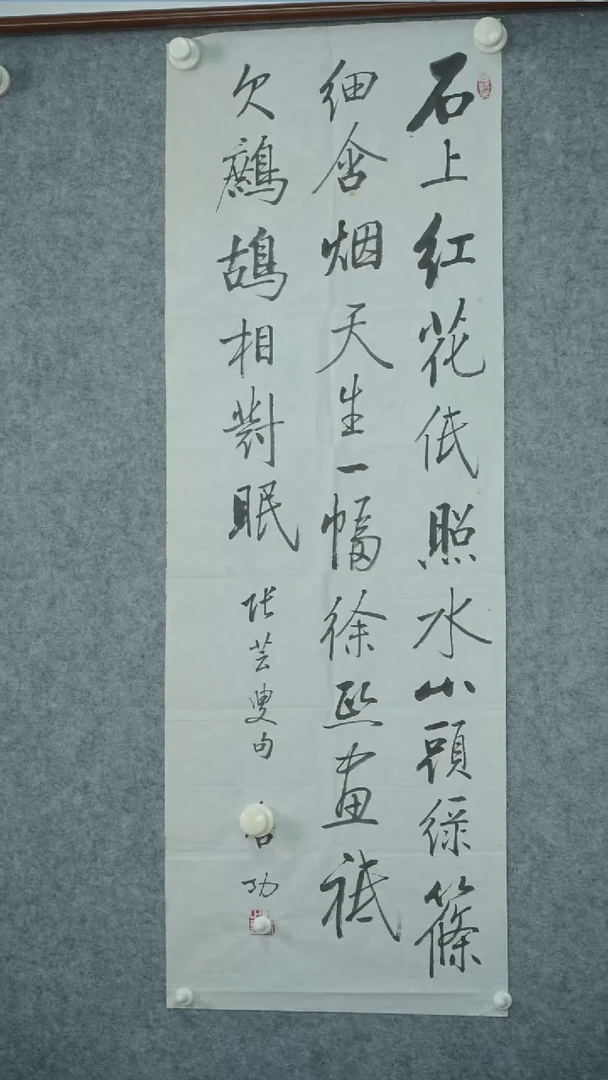 石上红花低照水山頭绿篠
细含烟天生一幅徐熙畫祇
欠鷓鴣相對眠
张芸叟句
启功